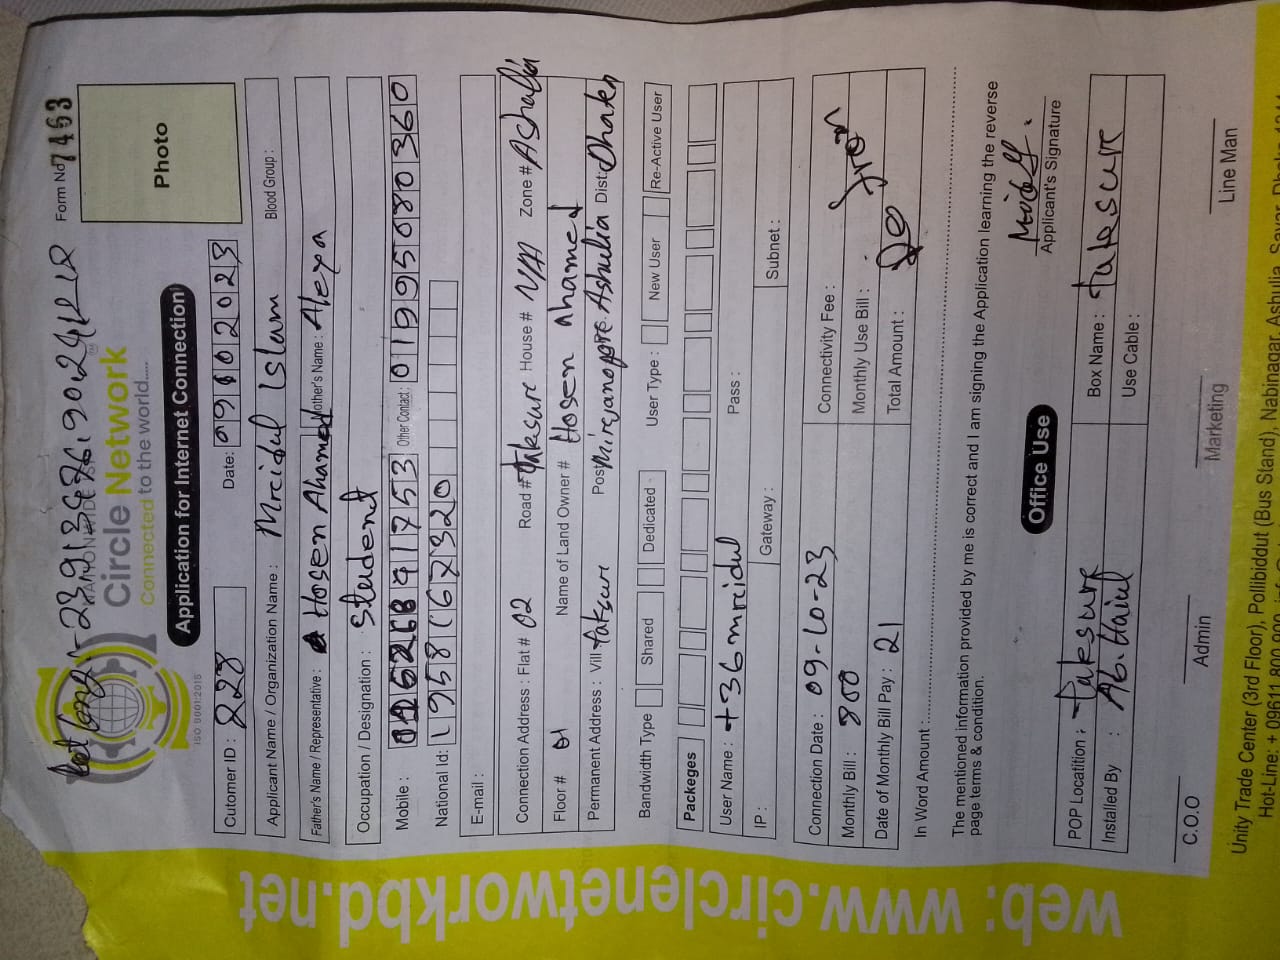 Form No 7463
WAMONWIDE ISP
Circle Network
Connected to the world.....
ISO 9001:2015
Application for Internet Connection
Photo
Cutomer ID : 228 Date: 09102023
Applicant Name / Organization Name : Mreidul Islam Blood Group :
Father's Name / Representative : Hosen Ahamed Mother's Name : Aleya
Occupation / Designation : Studennt
Mobile : Other Contact: 01995080360
National Id: 1958167320
E-mail :
Connection Address : Flat # 02 Road # taksure House # N/A Zone # Ashulia
Floor # 01 Name of Land Owner # Hosen ahamed
Permanent Address : Vill taksure Post Ashulia Dist: Dhaka
Bandwidth Type Shared Dedicated User Type : New User Re-Active User
Packeges
User Name : t36mreidul Pass :
IP : Gateway : Subnet :
Connection Date : 09-10-23 Connectivity Fee :
Monthly Bill : 800 Monthly Use Bill :
Date of Monthly Bill Pay : 21 Total Amount :
In Word Amount :
The mentioned information provided by me is correct and I am signing the Application learning the reverse
page terms & condition.
Applicant's Signature
Office Use
POP Locatition : taksure Box Name : taksure
Installed By : Ab. Haiul Use Cable :
C.O.O Admin Marketing Line Man
Unity Trade Center (3rd Floor), Pollibiddut (Bus Stand), Nabinagar, Ashulia, Savar, Dhaka
Hot-Line: + 09611 800 900
web: www.circlenetworkbd.net